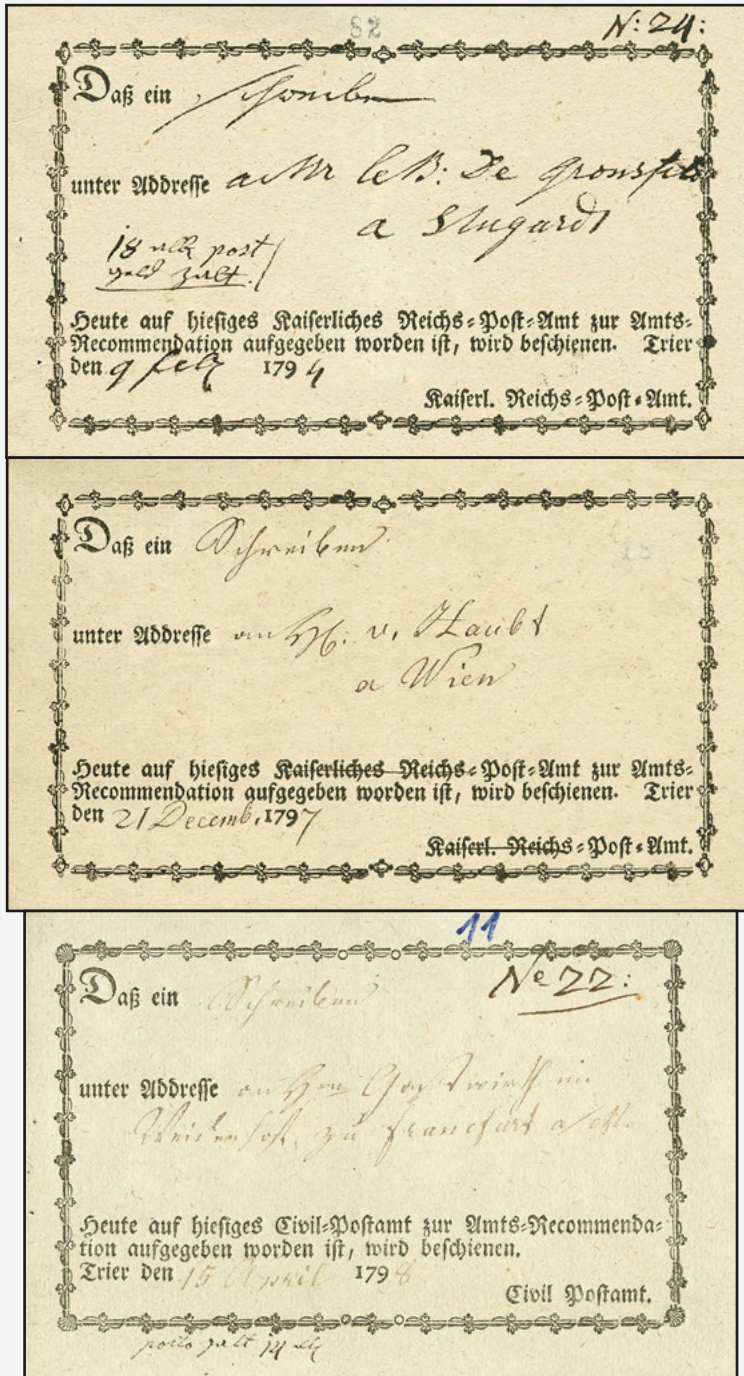 82
N: 24:
Daß ein
unter Addresse a Mr le B: De Gronsfeld
a Stugardt
18 post
geld zalt.
Heute auf hiesiges Kaiserliches Reichs-Post-Amt zur Amts-
Recommendation aufgegeben worden ist, wird beschienen. Trier
den 9 1794
Kaiserl. Reichs-Post-Amt.
Daß ein Schreiben
unter Addresse an H. v. Staubt
a Wien
Heute auf hiesiges Kaiserliches Reichs-Post-Amt zur Amts-
Recommendation aufgegeben worden ist, wird beschienen. Trier
den 21 Decemb. 1797
Kaiserl. Reichs-Post-Amt.
11
Daß ein Schreiben
No 22:
unter Addresse an Hrn Gastwirth im
Weidenhoff, zu Francfurt a/M
Heute auf hiesiges Civil-Postamt zur Amts-Recommenda-
tion aufgegeben worden ist, wird beschienen.
Trier den 15 April 1798
Civil Postamt.
porto zalt 14